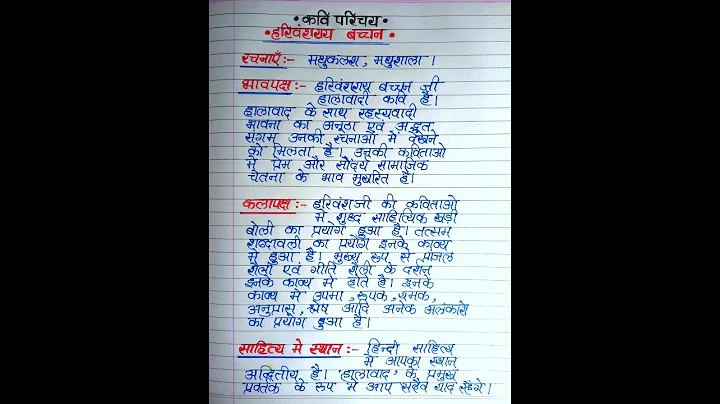 • कवि परिचय •
• हरिवंशराय बच्चन •
रचनाएँ :- मधुकलश, मधुशाला ।
भावपक्ष :- हरिवंशराय बच्चन जी
हालावादी कवि है।
हालावाद के साथ रहस्यवादी
भावना का अनूठा एवं अद्भुत
संगम उनकी रचनाओ मे देखने
को मिलता है। उनकी कविताओ
मे प्रेम और सौंदर्य सामाजिक
चेतना के भाव मुखरित है।
कलापक्ष :- हरिवंश जी की कविताओ
मे शुद्ध साहित्यिक खड़ी
बोली का प्रयोग हुआ है। तत्सम
शब्दावली का प्रयोग इनके काव्य
मे हुआ है। मुख्य रूप से प्रांजल
शैली एवं गीति शैली के दर्शन
इनके काव्य मे होते है। इनके
काव्य मे उपमा, रूपक, यमक,
अनुप्रास, श्लेष आदि अनेक अलंकारो
का प्रयोग हुआ है।
साहित्य मे स्थान :- हिन्दी साहित्य
मे आपका स्थान
अद्वितीय है। 'हालावाद' के प्रमुख
प्रवर्तक के रूप मे आप सदैव याद रहेगे।